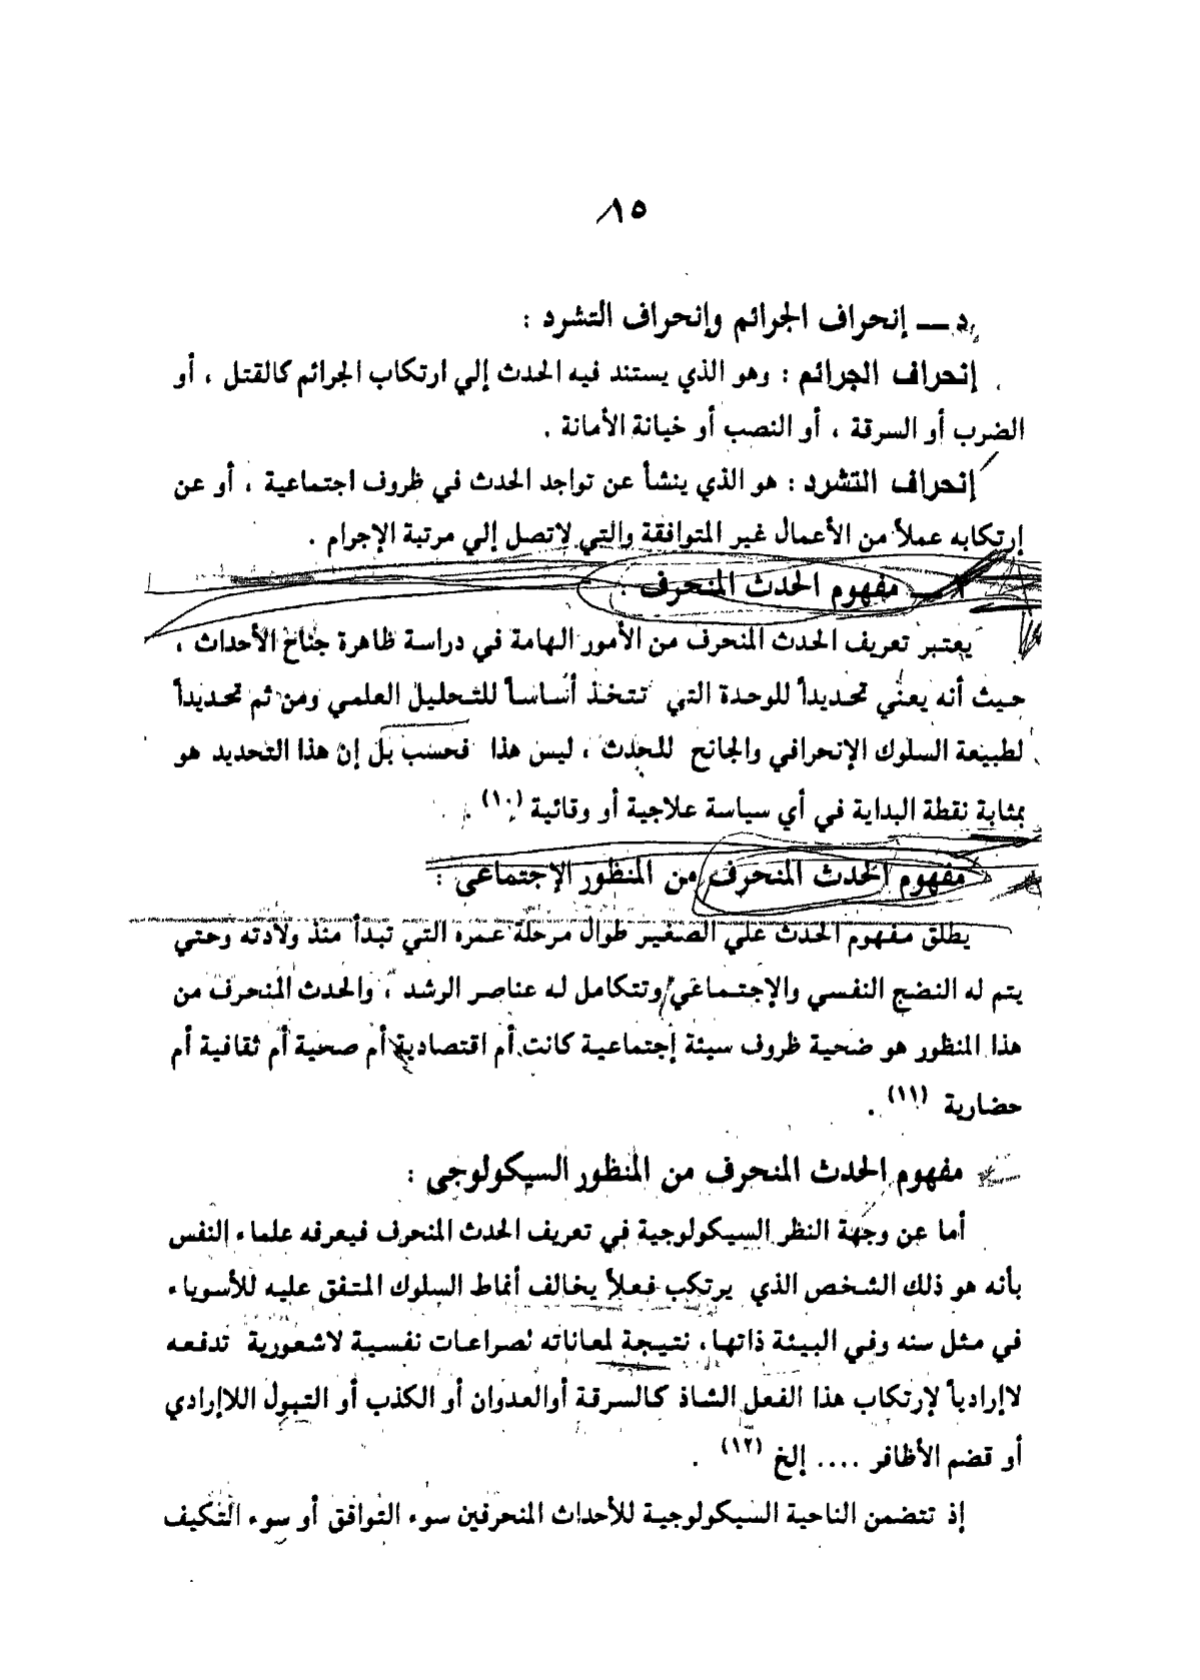 ٨٥
د ــ إنحراف الجرائم وإنحراف التشرد :
إنحراف الجرائم : وهو الذي يستند فيه الحدث إلي ارتكاب الجرائم كالقتل ، أو
الضرب أو السرقة ، أو النصب أو خيانة الأمانة .
إنحراف التشرد : هو الذي ينشأ عن تواجد الحدث في ظروف اجتماعية ، أو عن
إرتكابه عملاً من الأعمال غير المتوافقة والتي لاتصل إلي مرتبة الإجرام .
ــ مفهوم الحدث المنحرف :
يعتبر تعريف الحدث المنحرف من الأمور الهامة في دراسة ظاهرة جناح الأحداث ،
حيث أنه يعني تحديداً للوحدة التي تتخذ أساساً للتحليل العلمي ومن ثم تحديداً
لطبيعة السلوك الإنحرافي والجانح للحدث ، ليس هذا فحسب بل إن هذا التحديد هو
بمثابة نقطة البداية في أي سياسة علاجية أو وقائية (١٠) .
مفهوم الحدث المنحرف من المنظور الإجتماعى :
يطلق مفهوم الحدث علي الصغير طوال مرحلة عمره التي تبدأ منذ ولادته وحتي
يتم له النضج النفسي والإجتماعي وتتكامل له عناصر الرشد ، والحدث المنحرف من
هذا المنظور هو ضحية ظروف سيئة إجتماعية كانت أم اقتصادية أم صحية أم ثقافية أم
حضارية (١١) .
مفهوم الحدث المنحرف من المنظور السيكولوجى :
أما عن وجهة النظر السيكولوجية في تعريف الحدث المنحرف فيعرفه علماء النفس
بأنه هو ذلك الشخص الذي يرتكب فعلاً يخالف أنماط السلوك المتفق عليه للأسوياء
في مثل سنه وفي البيئة ذاتها، نتيجة لمعاناته لصراعات نفسية لاشعورية تدفعه
لاإرادياً لإرتكاب هذا الفعل الشاذ كالسرقة أوالعدوان أو الكذب أو التبول اللاإرادي
أو قضم الأظافر .... إلخ (١٢) .
إذ تتضمن الناحية السيكولوجية للأحداث المنحرفين سوء التوافق أو سوء التكيف